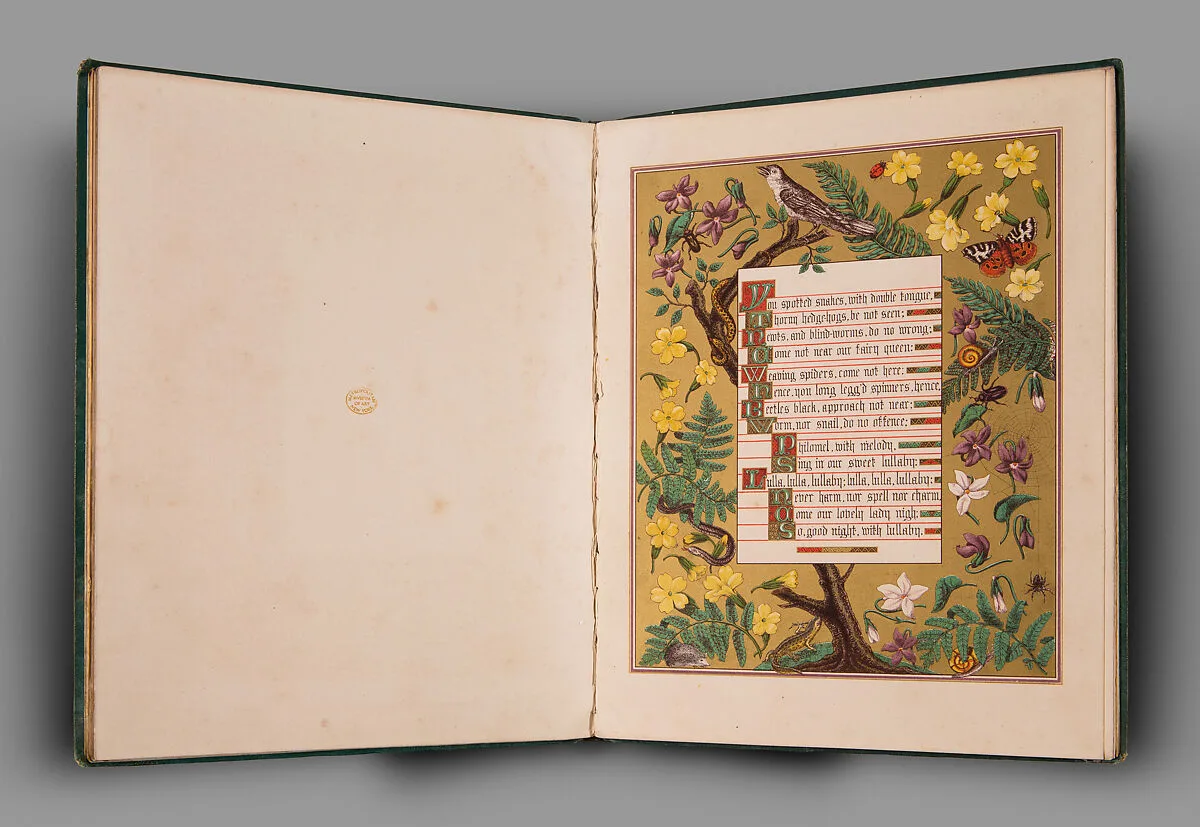 METROPOLITAN
MUSEUM
OF ART
NEW YORK
You spotted snakes, with double tongue,
Thorny hedgehogs, be not seen;
Newts, and blind-worms, do no wrong;
Come not near our fairy queen:
Weaving spiders, come not here;
Hence, you long legg'd spinners, hence,
Beetles black, approach not near;
Worm, nor snail, do no offence;
Philomel, with melody,
Sing in our sweet lullaby:
Lulla, lulla, lullaby; lulla, lulla, lullaby:
Never harm, nor spell nor charm,
Come our lovely lady nigh;
So, good night, with lullaby.